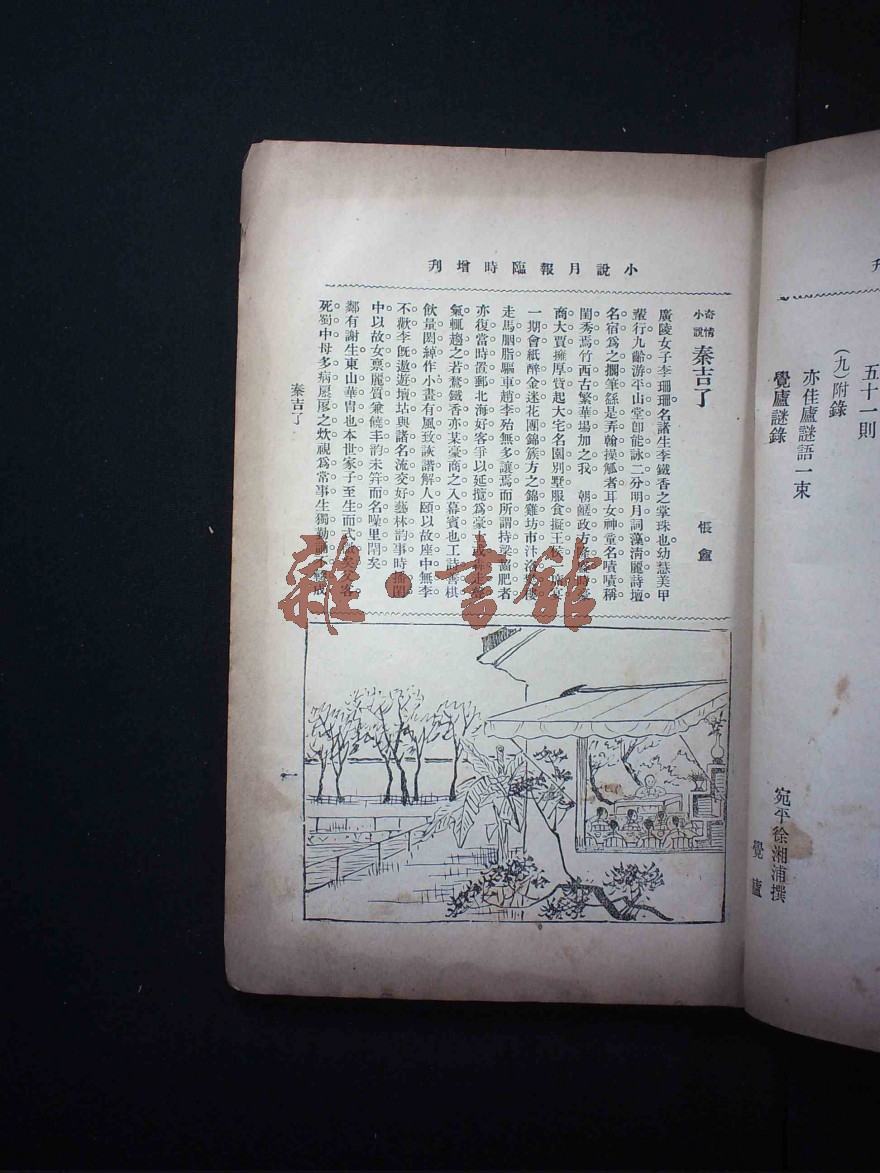 小說月報臨時增刊
奇情小說 秦吉了
悵盦
廣陵女子李珊珊名諸生李鐵香之掌珠也幼慧美甲
輩行九齡游平山堂卽能詠二分明月詞藻淸麗詩壇
名宿爲之擱筆繇是弄翰操觚者耳女神童名嘖嘖稱
閨秀焉竹西古繁華場加之我 朝鹺政方隆盛時
商大賈擁厚貲起大宅名園別墅服食擬王侯
一期會紙醉金迷花團錦簇方之錦雞坊市汴洛
走馬胭脂驅車趙李殆無多讓焉而所謂持粱齒肥者
亦復當時置郵北海好客爭以延攬爲豪
氣輒趨之若鶩鐵香亦某豪商之入幕賓也工詩善棋
飮量閎綽作小畫有風致詼諧解人頤以故座中無李
不歡李旣遨遊壇坫與諸名流交好藝林韵事時播閨
中以故女禀麗質兼饒丰韵未笄而名噪里閈矣
鄰有謝生東山華冑也本世家子至生而式微矣父客
死蜀中母多病扊扅之炊視爲常事生獨勤
秦吉了
一
雜·書館
刋
五十一則
(九)附錄
亦佳廬謎語一束
覺廬謎錄
宛平徐湘浦撰
覺廬